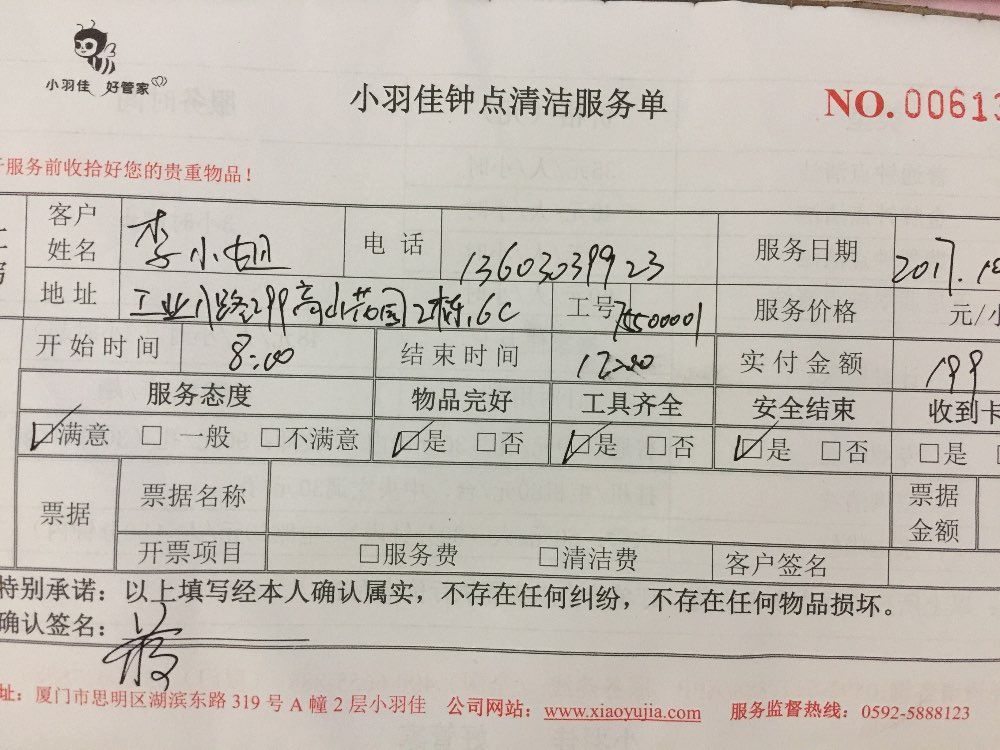 小羽佳 好管家
小羽佳钟点清洁服务单
NO.00613
服务前收拾好您的贵重物品！
客户姓名 李小姐 电话 13603039923 服务日期 2017.
地址 工业八路299高山花园2栋.6C 工号 服务价格 元/小
开始时间 8:00 结束时间 12:00 实付金额 199
服务态度 物品完好 工具齐全 安全结束 收到卡
☑满意 □一般 □不满意 ☑是 □否 ☑是 □否 ☑是 □否 □是
票据 票据名称 票据金额
开票项目 □服务费 □清洁费 客户签名
特别承诺：以上填写经本人确认属实，不存在任何纠纷，不存在任何物品损坏。
确认签名：
址：厦门市思明区湖滨东路 319 号 A 幢 2 层小羽佳 公司网站：www.xiaoyujia.com 服务监督热线：0592-5888123